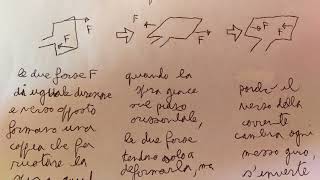 F F F F F F
le due forse F
di uguale direzione
e verso opposto
formano una
coppia che fa
ruotare la
quando la
spira giace
sul piano
orizzontale,
le due forse
tendono solo a
deformarla, ma
poichè il
verso della
corrente
cambia ogni
mezzo giro,
s'inverte